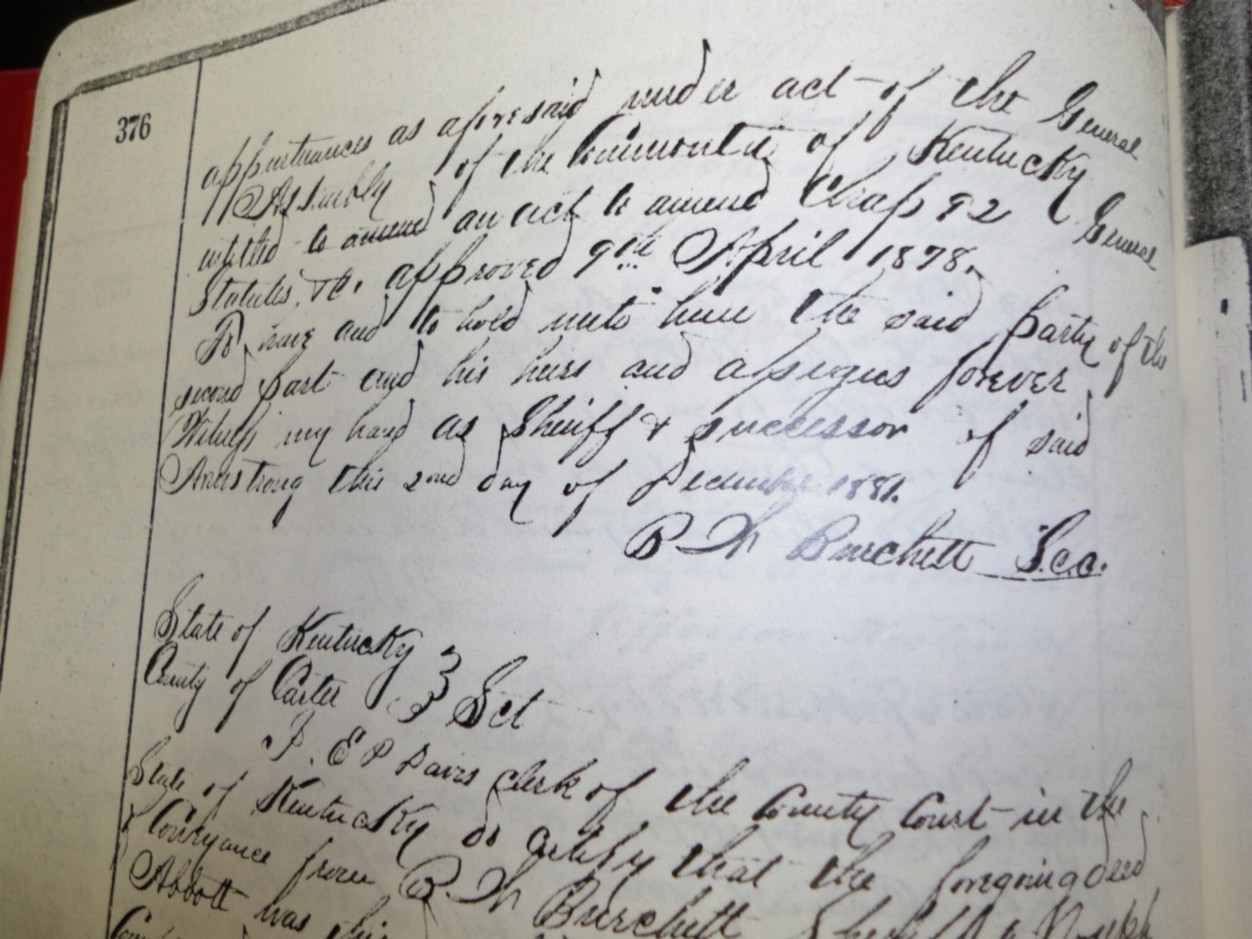 376
appurtenances as aforesaid under act of the General
Assembly of the Commonwealth of Kentucky
entitled to amend an act to amend Chap 92 General
Statutes, &c. approved 9th April 1878.
To have and to hold unto him the said party of the
second part and his heirs and assigns forever
Witness my hand as Sheriff & successor of said
Armstrong this 2nd day of December 1881.
R M Burchett S.C.C.
State of Kentucky }
County of Carter } Sct
I. E P Davis clerk of the County Court in the
State of Kentucky do certify that the foregoing deed
Conveyance from R M Burchett Sheriff to Joseph
Abbott was this